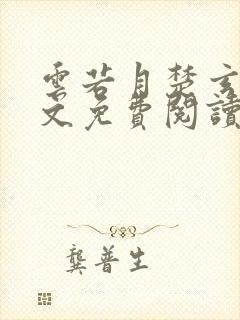 雲若月楚玄
文免費閱讀
龔普生